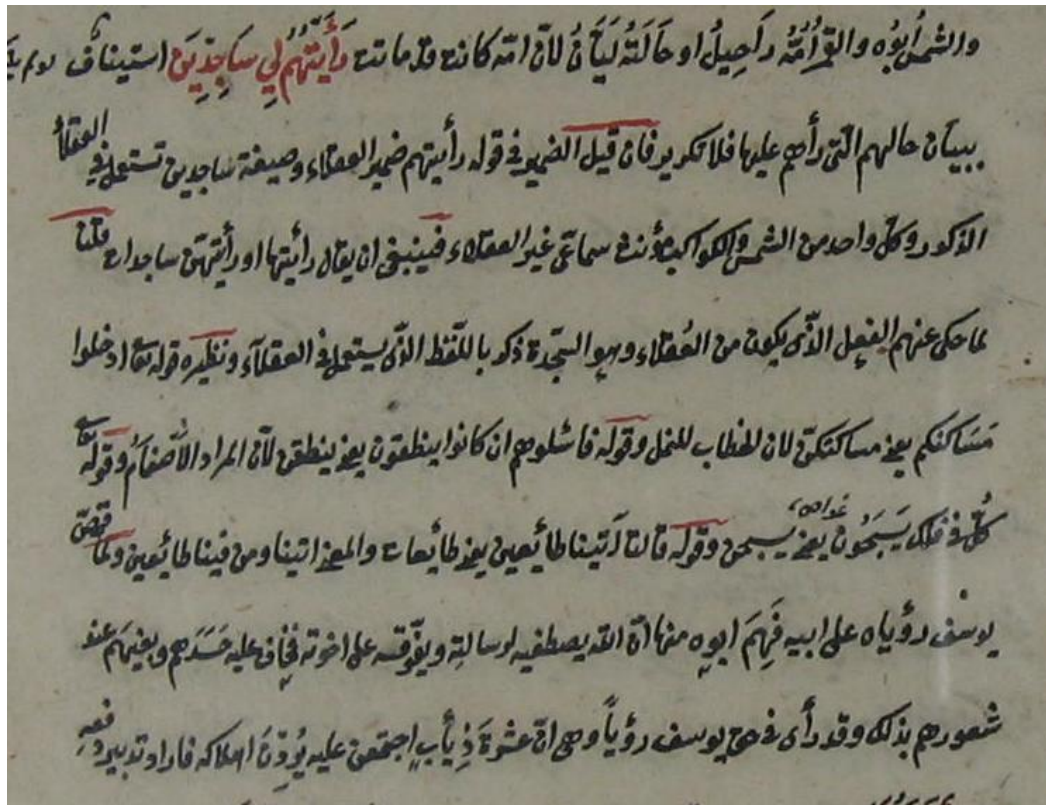 والشمس أبوه والقمر أمّه راحيل او خالته ليان لأن امّه كانت قد ماتت رأيتهم لي ساجدين استيناف
ببيان حالهم التي رأهم عليها فلا تكرير فان قيل الضمير في قوله رأيتهم ضمير العقلاء وصيغة ساجدين تستعمل في العقلاء
الذكور وكل واحد من الشمس والكواكب مؤنث سماعي غير العقلاء فينبغي ان يقال رأيتها او رأيتهن ساجدات قلنا
لما حكى عنهم الفعل الذي يكون من العقلاء وهو السجدة ذكر باللفظ الذي يستعمل في العقلاء ونظيره قوله تعا ادخلوا
مساكنكم يعني مساكنكن لان الخطاب للنمل وقوله فاسئلوهم ان كانوا ينطقون يعني ينطقن لأن المراد الأصنام وقوله تعا
كل في فلك يسبحون يعني يسبحن وقوله قالتا أتينا طائعين يعني طائعات والمعنى اتينا ومن فينا طائعين ولما قصّ
يوسف رؤياه على ابيه فهم ابوه منها ان الله يصطفيه لرسالته ويفوّقه على اخوته فخاف عليه حسدهم وبغيهم عند
شعورهم بذلك وقد رأى في حق يوسف رؤياً وهي ان عشرة ذياب اجتمعن عليه يردن اهلاكه فاراد تدبير دفعه